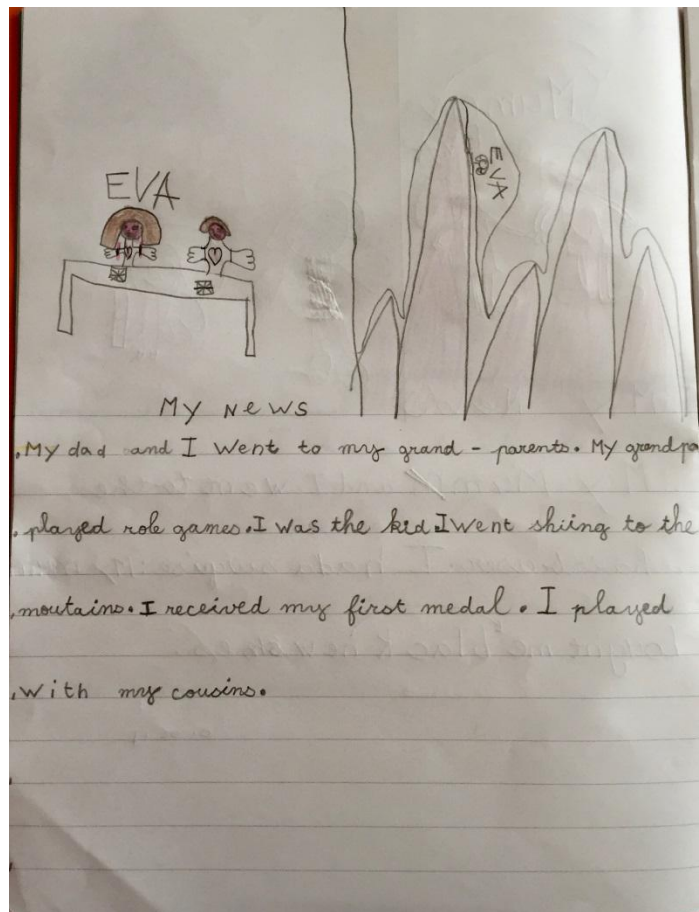 EVA
EVA
My News
My dad and I went to my grand - parents. My grandpa
played role games. I was the kid. I went skiing to the
moutains. I received my first medal. I played
with my cousins.